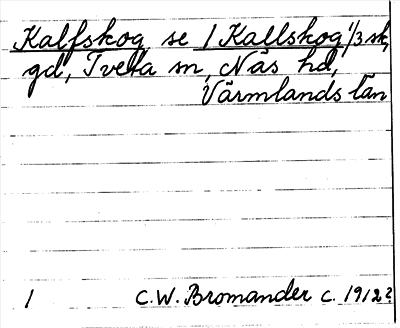 Kalfskog se / Kallskog 1/3 sk,
gd, Tveta sn, Näs hd,
Värmlands län
1 C.W. Bromander c. 1912?